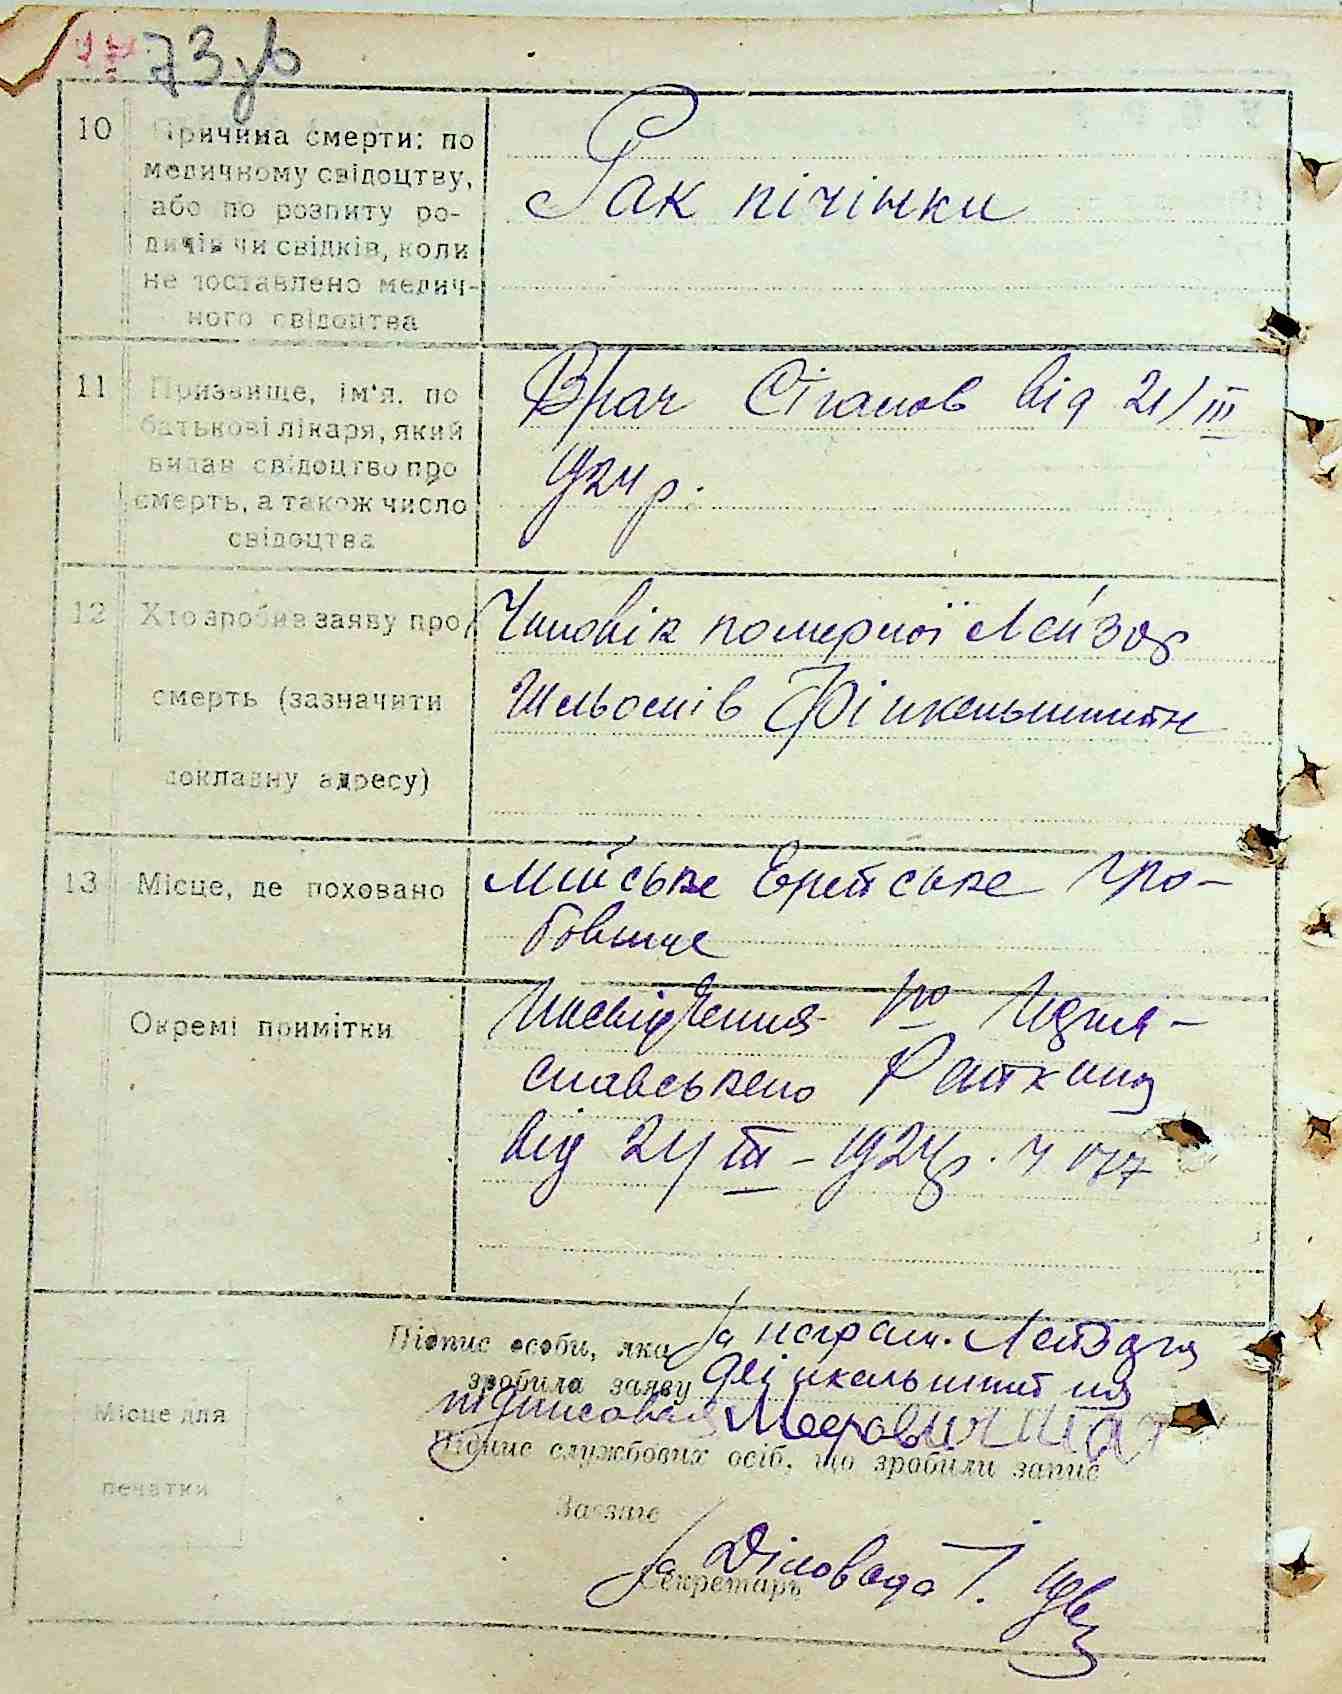 73зв
10
Причина смерти: по
медичному свідоцтву,
або по розпиту ро-
дичів чи свідків, коли
не поставлено медич-
ного свідоцтва
Рак пічінки
11
Призвище, ім'я, по
батькові лікаря, який
видав свідоцтво про
смерть, а також число
свідоцтва
Врач від 21/III
1924 р.
12
Хто зробив заяву про
смерть (зазначити
докладну адресу)
Чиловік померної Лейзор
Шльомів Фінкельштейн
13
Місце, де поховано
Міське Еврейське гро-
бовище
Окремі примітки
по Ізяс-
лавського
від 24 III – 1924р. Ч 177
Підпис особи, яка
зробила заяву
За неграм. Лейзора
Фінкельштейна
Меерович
Підпис службових осіб, що зробили запис
Завзагс
Секретарь
За Діловода
Місце для
печатки